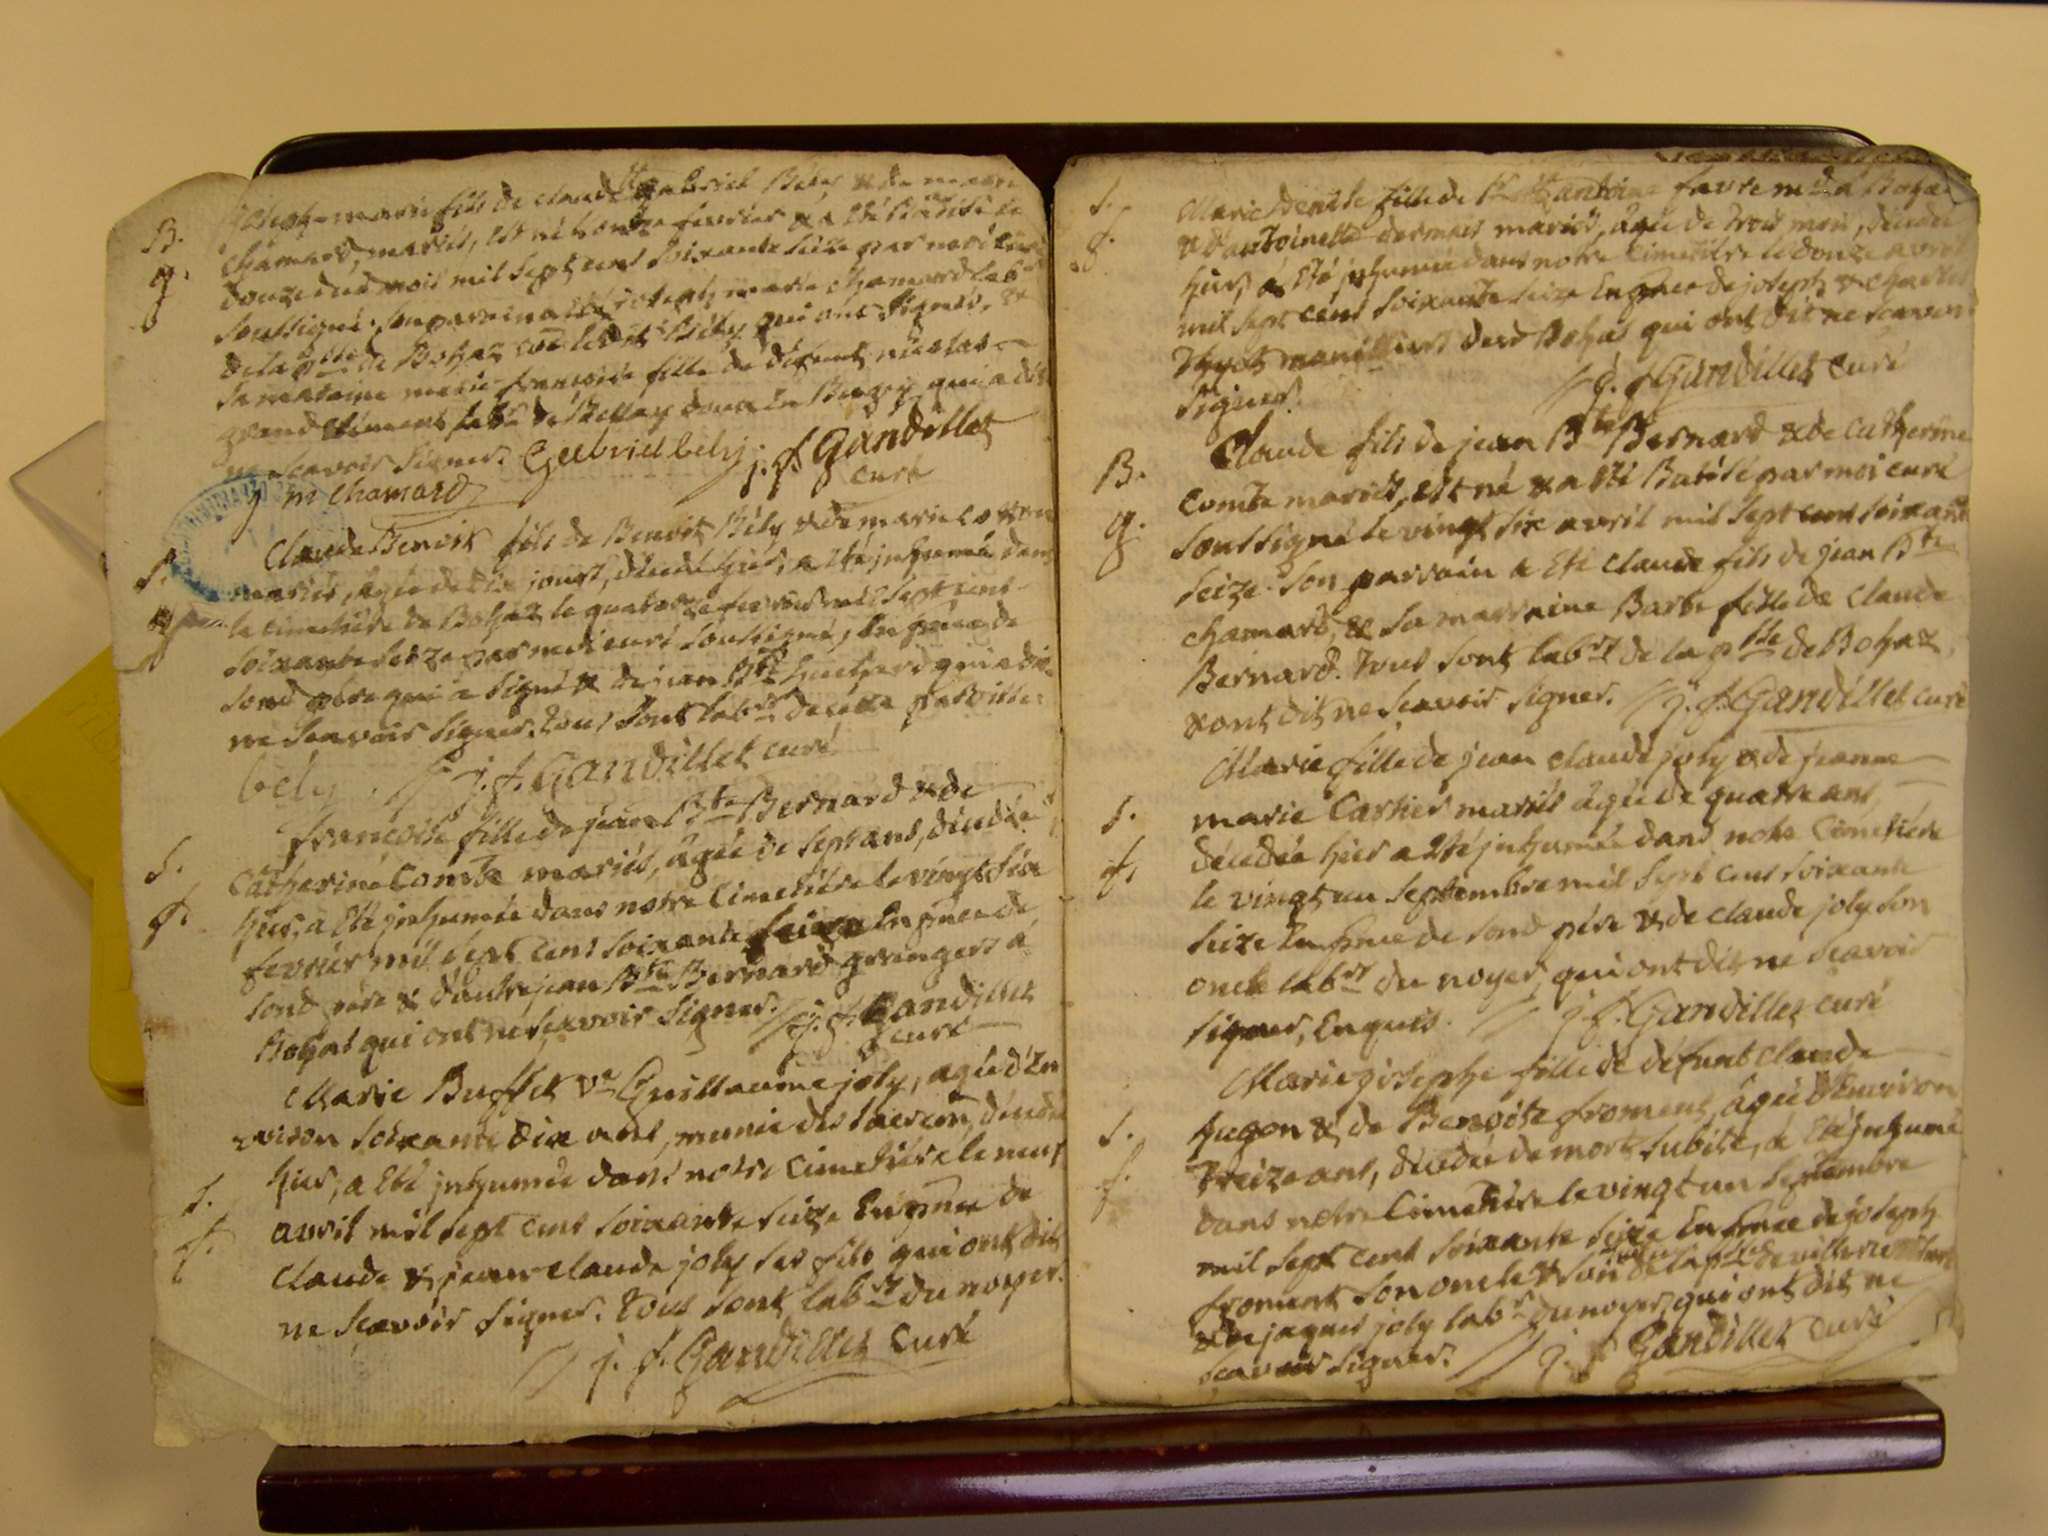 B.
g.
joseph-marie fils de claude gabriel Bély & de marie
chamard, mariés, est né le onze fevrier & a été Bâtisé le
douze dud mois mil sept cens soixante seize par moi curé
soussigné. son parrain a été joseph marie chamard lab
de la psse de Bohaz led Bély qui ont signés, &
sa marraine marie françoise fille de défunt nicolas
grand clément lab de Bellay dans le Bugey qui a dit
ne scavoir signer. Gabriel bely j. f. Gandillet
curé
j m chamard
S.
g.
Claude Benoit fils de Benoit Bély & de marie
mariés, agée de dix jours, décédé hier, a été inhumé dans
le cimetière de Bohaz le quatorze fevrier mil sept cens
soixante seize par moi curé soussigné, En pnce de
sond père qui a signé & de jean Bte huchard qui a dit
ne scavoir signer. tous sont labrs de cette paroisse
bely. j. f. Gandillet curé
S.
f.
francoise fille de jean Bte Bernard & de
Catherine Comte mariés, âgée de sept ans, décédée
hier, a été inhumée dans notre Cimetière le vingt six
fevrier mil sept cens soixante seize En pnce de
sond père & d'autre jean Bte Bernard grangers à
Bohas qui ont né scavoir signer. j. f. Gandillet
curé
Marie Buffet ve Guillaume joly, agée d'En
viron soixante dix ans, munie des sacremn, décédée
S.
f.
hier, a Eté inhumée dans notre cimetière le neuf
avril mil sept cens soixante seize En pnce de
Claude & jean claude joly ses fils qui ont dit
ne scavoir signer. tous sont labrs du noyer.
j. f. Gandillet Curé
S.
f.
Marie Denise fille de Sr antoine favre md à Bohaz
& d'antoinette desmars mariés, agée de trois mois, décédée
hier, a Eté inhumée dans notre Cimetière le douze avril
mil sept cens soixante seize En pnce de joseph & charles
manilliers dud Bohas qui ont dit ne scavoir
signer. j. f Gandillet Curé
B.
g.
Claude fils de jean Bte Bernard & de Catherine
Comte mariés, est né & a été Batisé par moi curé
soussigné le vingt six avril mil sept cens soixante
seize. son parrain a Eté Claude fils de jean Bte
chamard, & sa marraine Barbe fille de Claude
Bernard. tous sont labrs de la psse de Bohaz,
& ont dit ne scavoir signer. j. f. Gandillet curé
S.
f.
Marie fille de jean claude joly & de jeanne
marie Carrier mariés âgée de quatre ans,
décédée hier a été inhumée dans notre Cimetière
le vingt un septembre mil sept cens soixante
seize En pnce de sond père & de claude joly son
oncle labrs du noyer, qui ont dit ne scavoir
signer, Enquis. j. f. Gandillet curé
S.
f.
Marie josephe fille de défunt claude
hugon & de Benoite froment, âgée d'Environ
treize ans, décédée de mort subite, a Eté inhumé
dans notre Cimetière le vingt un septembre
mil sept cens soixante seize En pnce de joseph
froment son oncle & de la psse de
& de jaques joly labr du noyer, qui ont dit ne
scavoir signer. j. f Gandillet curé